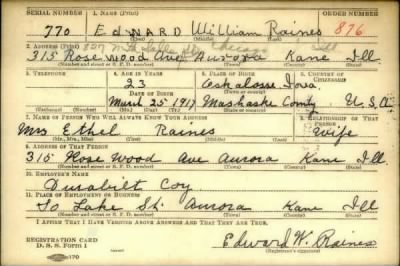 SERIAL NUMBER 1. NAME (Print) ORDER NUMBER
770 EdWARD William Raines 876
(First) (Middle) (Last)
2. ADDRESS (Print)
315 Rosewood Ave Aurora Kane Ill.
(Number and street or R. F. D. number) (Town) (County) (State)
3. TELEPHONE 4. AGE IN YEARS 5. PLACE OF BIRTH 6. COUNTRY OF CITIZENSHIP
23 Oskalosse, Iowa,
DATE OF BIRTH (Town or county)
March 25 1917 Mahaska County U.S.A.
(Exchange) (Number) (Mo.) (Day) (Yr.) (State or country)
7. NAME OF PERSON WHO WILL ALWAYS KNOW YOUR ADDRESS 8. RELATIONSHIP OF THAT PERSON
Mrs Ethel Raines Wife
(Mr., Mrs., Miss) (First) (Middle) (Last)
9. ADDRESS OF THAT PERSON
315 Rose Wood Ave Aurora Kane Ill.
(Number and street or R. F. D. number) (Town) (County) (State)
10. EMPLOYER'S NAME
Durabilt Coy
11. PLACE OF EMPLOYMENT OR BUSINESS
So Lake St. Aurora Kane Ill
(Number and street or R. F. D. number) (Town) (County) (State)
I AFFIRM THAT I HAVE VERIFIED ABOVE ANSWERS AND THAT THEY ARE TRUE.
REGISTRATION CARD
D. S. S. Form 1 Edward W. Raines
(Registrant's signature)